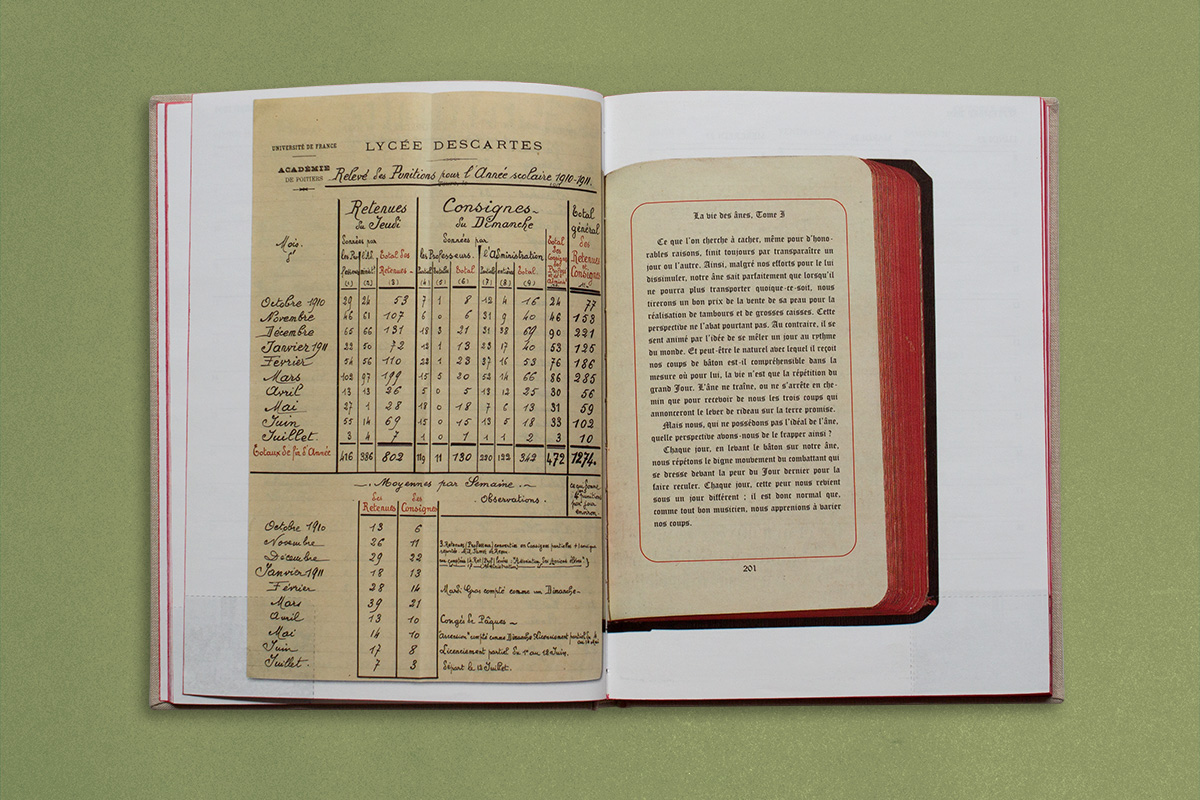 UNIVERSITÉ DE FRANCE
ACADÉMIE
DE POITIERS
LYCÉE DESCARTES
Relevé des Punitions pour l'Année scolaire 1910-1911.
Retenues Consignes Total
du Jeudi du Dimanche général
Mois. Données par Données par des
Total des Retenues les Professeurs. l'Administration Retenues
Total Total Consignes
(1) (2) (3) (4) (5) (6) (7) (8) (9)
Octobre 1910 29 24 53 7 1 8 12 4 16 24 77
Novembre 46 61 107 6 0 6 31 9 40 46 153
Décembre 65 66 131 18 3 21 31 38 69 90 221
Janvier 1911 22 50 72 12 1 13 23 17 40 53 125
Février 54 56 110 22 1 23 37 16 53 76 186
Mars 102 97 199 15 5 20 52 14 66 86 285
Avril 13 13 26 5 0 5 13 12 25 30 56
Mai 27 1 28 18 0 18 7 6 13 31 59
Juin 55 14 69 15 0 15 13 5 18 33 102
Juillet. 3 4 7 1 0 1 1 1 2 3 10
Totaux de fin d'Année 416 386 802 119 11 130 220 122 342 472 1274.
Moyennes par Semaine.
Des Retenues Des Consignes Observations.
Octobre 1910 13 6
Novembre 26 11
Décembre 29 22
Janvier 1911 18 13
Février 28 14 Mardi Gras compté comme un Dimanche
Mars 39 21
Avril 13 10 Congés de Pâques
Mai 14 10 Ascension compté comme Dimanche Licenciement partiel
Juin 17 8 Licenciement partiel du 1er au 12 Juin.
Juillet. 7 3 Départ le 12 Juillet.
La vie des ânes, Tome I
Ce que l'on cherche à cacher, même pour d'hono-
rables raisons, finit toujours par transparaître un
jour ou l'autre. Ainsi, malgré nos efforts pour le lui
dissimuler, notre âne sait parfaitement que lorsqu'il
ne pourra plus transporter quoique-ce-soit, nous
tirerons un bon prix de la vente de sa peau pour la
réalisation de tambours et de grosses caisses. Cette
perspective ne l'abat pourtant pas. Au contraire, il se
sent animé par l'idée de se mêler un jour au rythme
du monde. Et peut-être le naturel avec lequel il reçoit
nos coups de bâton est-il compréhensible dans la
mesure où pour lui, la vie n'est que la répétition du
grand Jour. L'âne ne traîne, ou ne s'arrête en che-
min que pour recevoir de nous les trois coups qui
annonceront le lever de rideau sur la terre promise.
Mais nous, qui ne possédons pas l'idéal de l'âne,
quelle perspective avons-nous de le frapper ainsi ?
Chaque jour, en levant le bâton sur notre âne,
nous répétons le digne mouvement du combattant qui
se dresse devant la peur du Jour dernier pour la
faire reculer. Chaque jour, cette peur nous revient
sous un jour différent ; il est donc normal que,
comme tout bon musicien, nous apprenions à varier
nos coups.
201